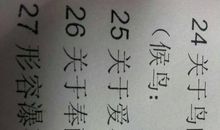 24 关于鸟
(候鸟:
25 关于爱
26 关于奉
27 形容瀑